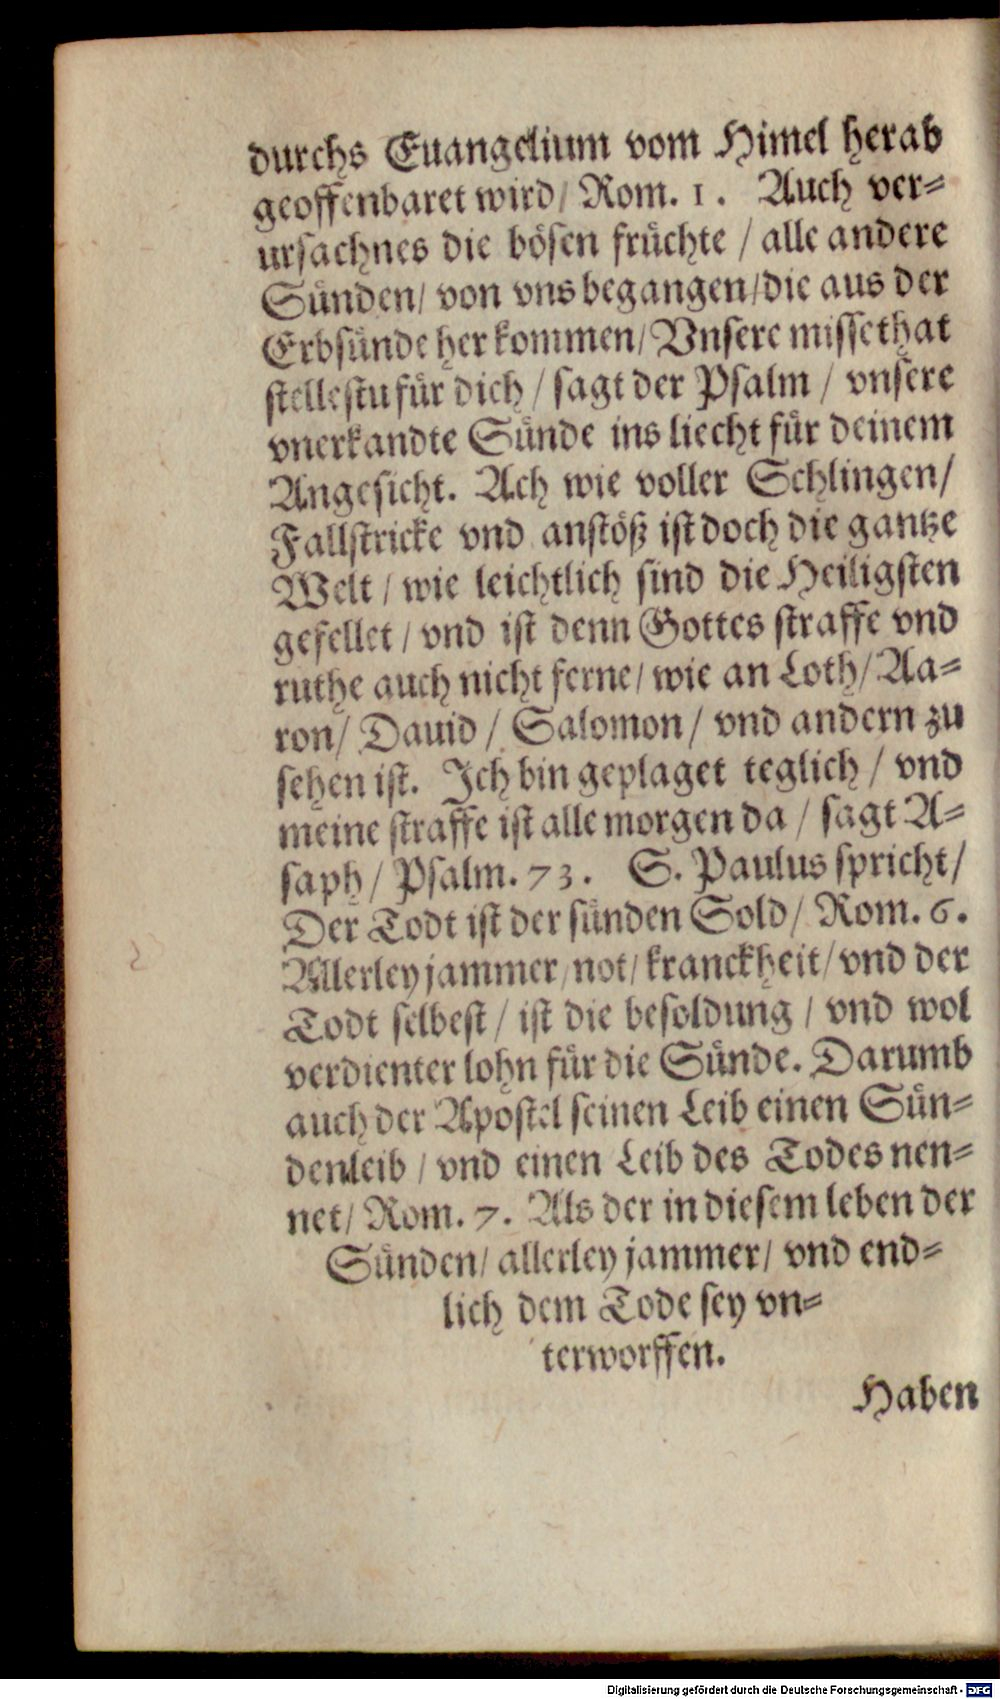 durchs Euangelium vom Himel herab
geoffenbaret wird/ Rom. 1. Auch ver-
ursachnes die bösen früchte / alle andere
Sünden/ von vns begangen/die aus der
Erbsünde her kommen/ Vnsere missethat
stellestu für dich / sagt der Psalm / vnsere
vnerkandte Sünde ins liecht für deinem
Angesicht. Ach wie voller Schlingen/
Fallstricke vnd anstöß ist doch die gantze
Welt / wie leichtlich sind die Heiligsten
gefellet / vnd ist denn Gottes straffe vnd
ruthe auch nicht ferne/ wie an Loth/ Aa-
ron/ Dauid / Salomon / vnd andern zu
sehen ist. Ich bin geplaget teglich / vnd
meine straffe ist alle morgen da / sagt A-
saph / Psalm. 73. S. Paulus spricht/
Der Todt ist der sünden Sold/ Rom. 6.
Allerley jammer/ not/ kranckheit/ vnd der
Todt selbest / ist die besoldung / vnd wol
verdienter lohn für die Sünde. Darumb
auch der Apostel seinen Leib einen Sün-
denleib / vnd einen Leib des Todes nen-
net/ Rom. 7. Als der in diesem leben der
Sünden/ allerley jammer/ vnd end-
lich dem Tode sey vn-
terworffen.
Haben
Digitalisierung gefördert durch die Deutsche Forschungsgemeinschaft - DFG